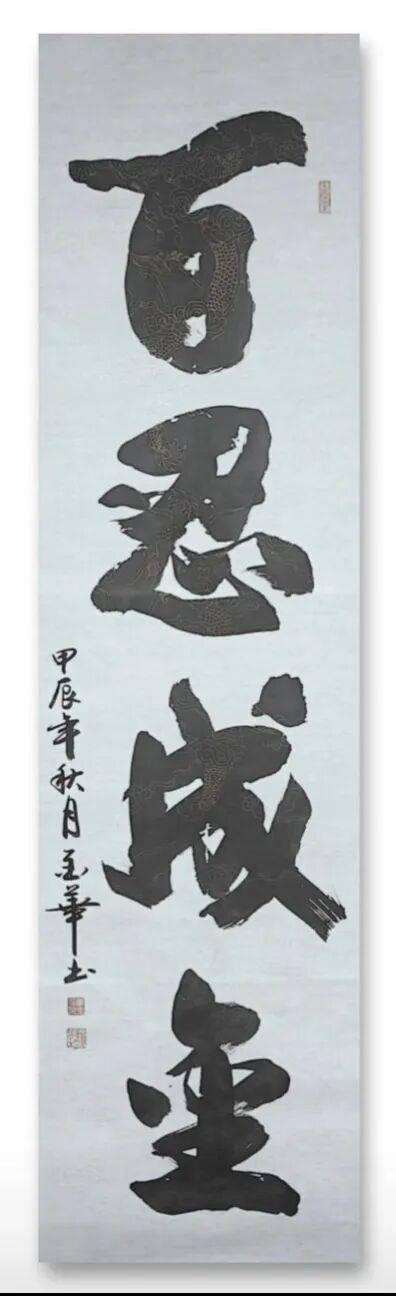 百忍成金
甲辰年秋月玉华书